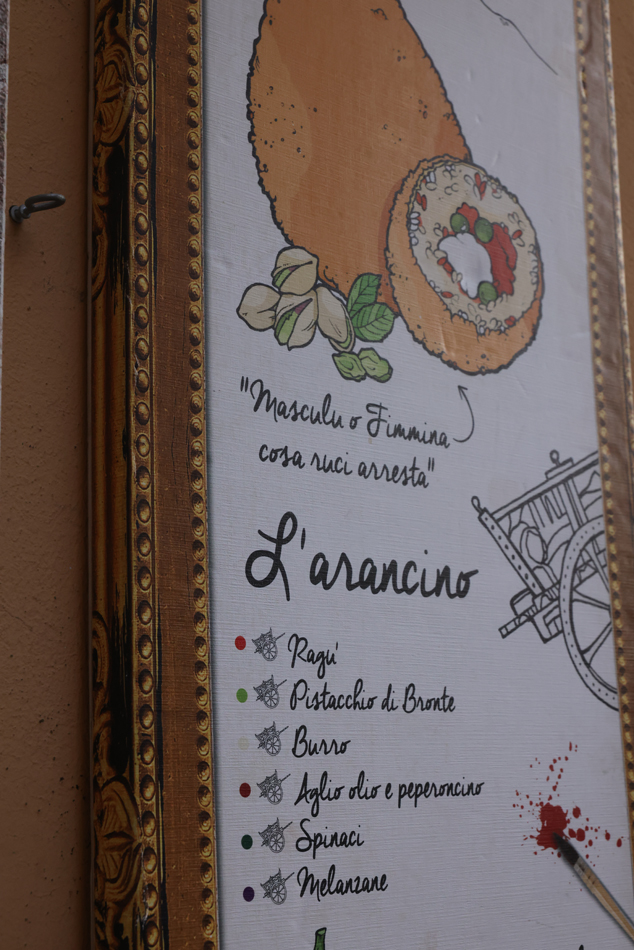 "Masculu o Fimmina
cosa ruci arresta"
L'arancino
Ragu'
Pistacchio di Bronte
Burro
Aglio olio e peperoncino
Spinaci
Melanzane